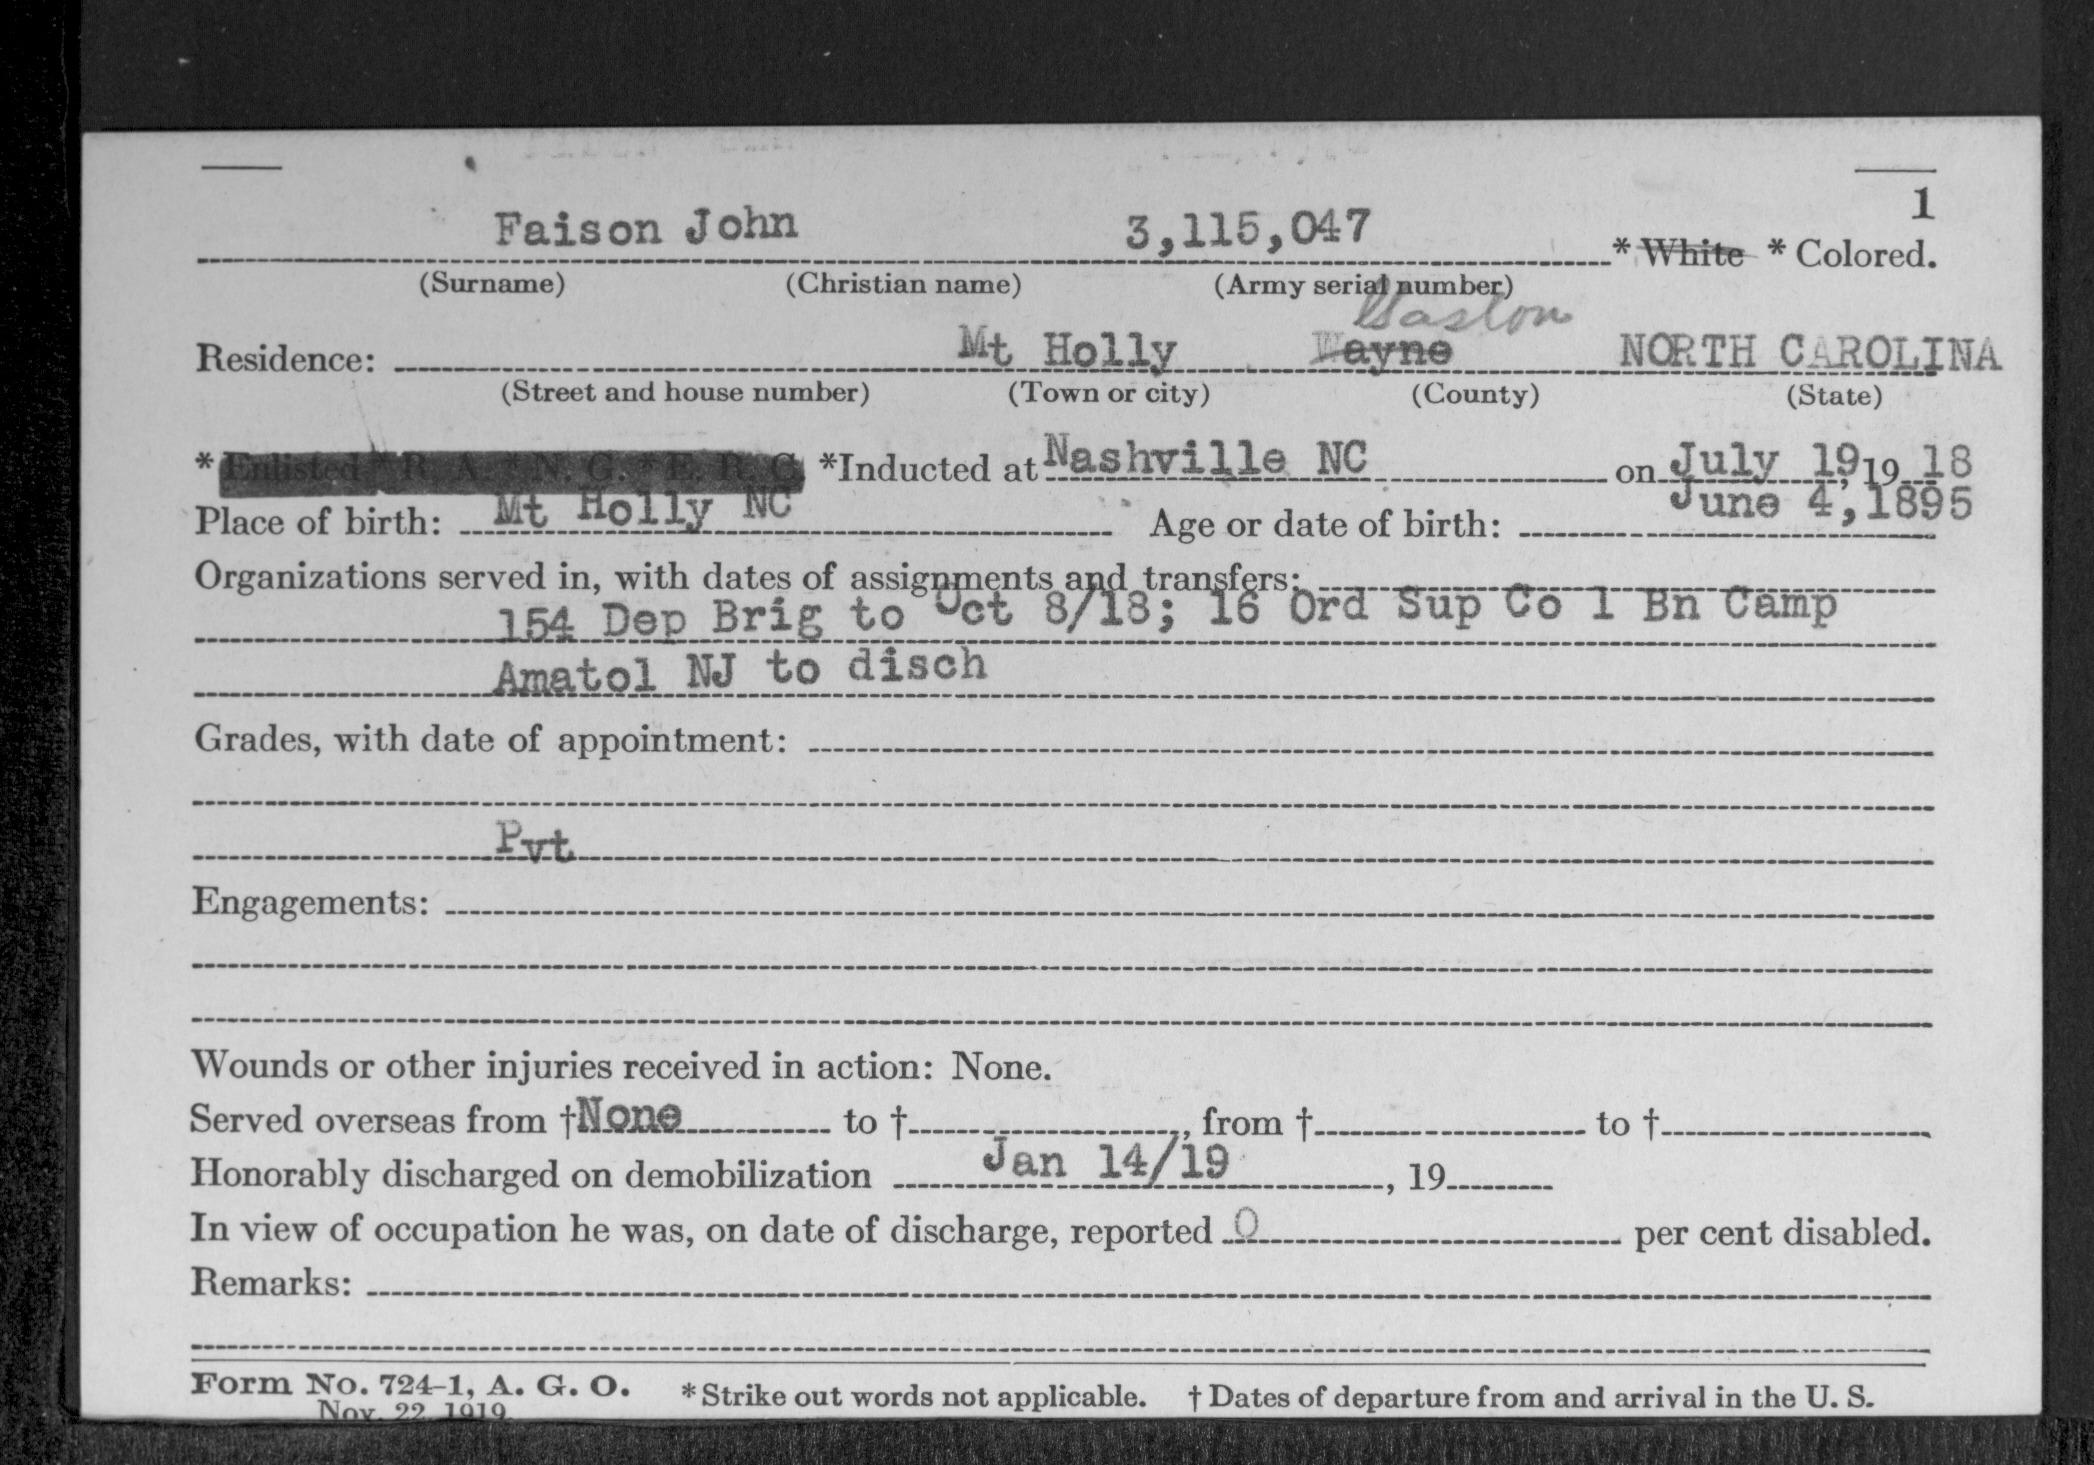 1
Faison John 3,115,047 * White * Colored.
(Surname) (Christian name) (Army serial number)
Gaston
Residence: Mt Holly Wayne NORTH CAROLINA
(Street and house number) (Town or city) (County) (State)
* Enlisted * R. A. * N. G. * E. R. C. *Inducted at Nashville NC on July 19, 19 18
Place of birth: Mt Holly NC Age or date of birth: June 4, 1895
Organizations served in, with dates of assignments and transfers:
154 Dep Brig to Oct 8/18; 16 Ord Sup Co 1 Bn Camp
Amatol NJ to disch
Grades, with date of appointment:
Pvt
Engagements:
Wounds or other injuries received in action: None.
Served overseas from †None to †, from † to †
Honorably discharged on demobilization Jan 14/19, 19
In view of occupation he was, on date of discharge, reported 0 per cent disabled.
Remarks:
Form No. 724-1, A. G. O. * Strike out words not applicable. † Dates of departure from and arrival in the U. S.
Nov. 22, 1919